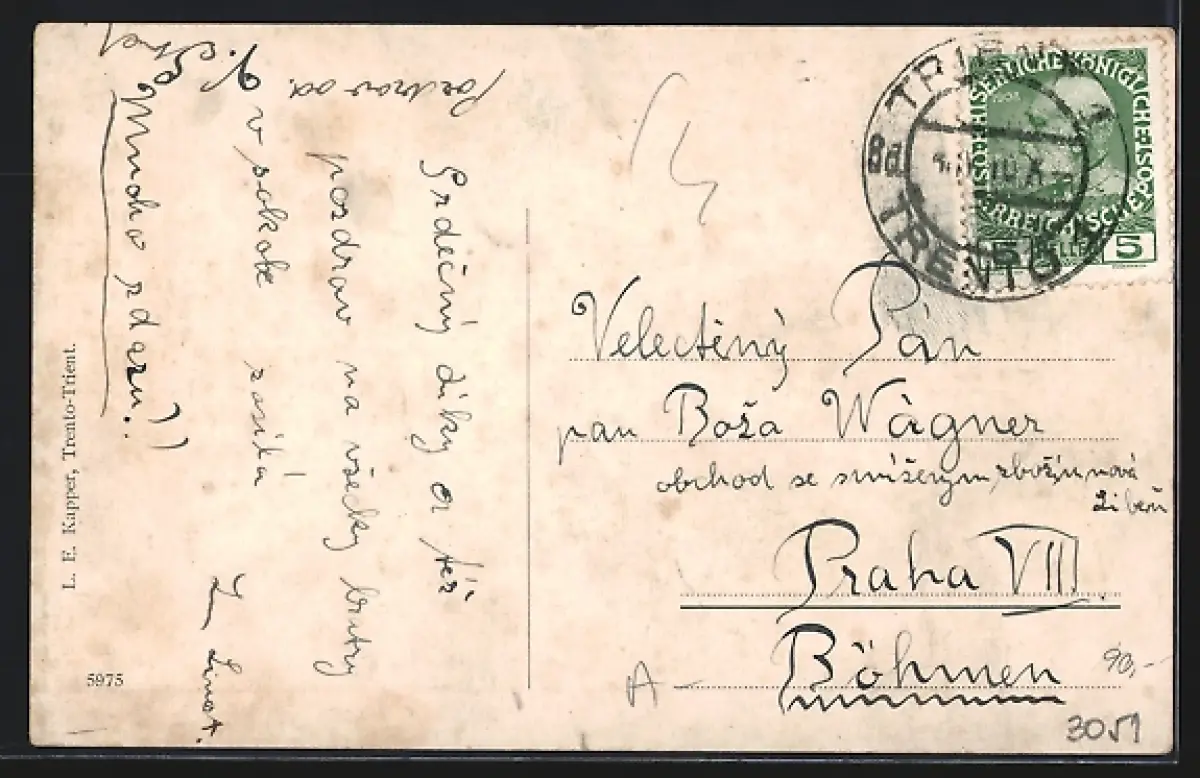 Srdečný díky a též
pozdrav na všecky bratry
v sokole zasílá
Mnoho zdaru!!
Pozdrav od
L. E. Kapper, Trento-Trient.
5975
TRIENT
8d
TRENTO
KAISERLICHE KÖNIGLICHE ÖSTERREICHISCHE POST
1908
5 HELLER 5
Velectěný Pán
pan Boža Wágner
obchod se smíšeným zbožím nová
Libeň
Praha VIII.
Böhmen
A -
90,-
3051